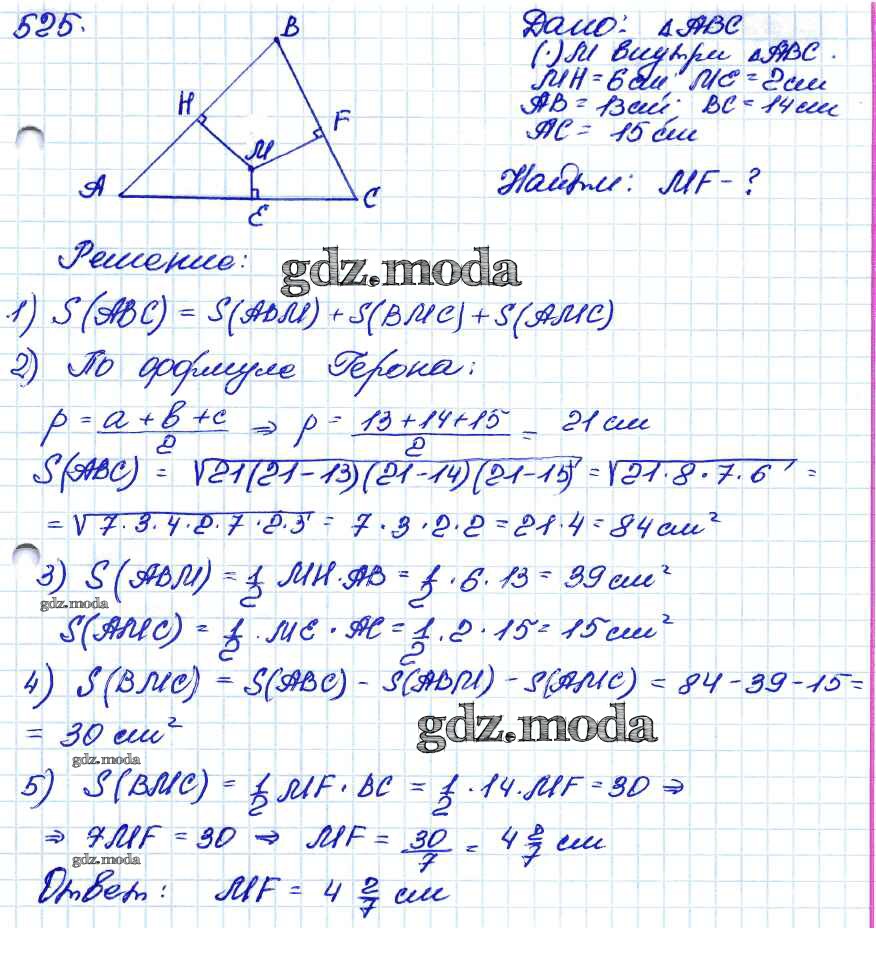 525.
B
H
F
M
A
E
C
Дано: △ABC
(·) M внутри △ABC.
MH = 6 см; ME = 2 см
AB = 13 см; BC = 14 см
AC = 15 см
Найти: MF - ?
Решение:
gdz.moda
1) S(ABC) = S(ABM) + S(BMC) + S(AMC)
2) По формуле Герона:
p = (a + b + c)/2 ⇒ p = (13+14+15)/2 = 21 см
S(ABC) = √(21(21-13)(21-14)(21-15)) = √(21·8·7·6) =
= √(7·3·4·2·7·2·3) = 7·3·2·2 = 21·4 = 84 см²
3) S(ABM) = 1/2 MH·AB = 1/2·6·13 = 39 см²
gdz.moda
S(AMC) = 1/2·ME·AC = 1/2·2·15 = 15 см²
4) S(BMC) = S(ABC) - S(ABM) - S(AMC) = 84 - 39 - 15 =
= 30 см²
gdz.moda
gdz.moda
5) S(BMC) = 1/2 MF·BC = 1/2·14·MF = 30 ⇒
⇒ 7MF = 30 ⇒ MF = 30/7 = 4 2/7 см
gdz.moda
Ответ: MF = 4 2/7 см